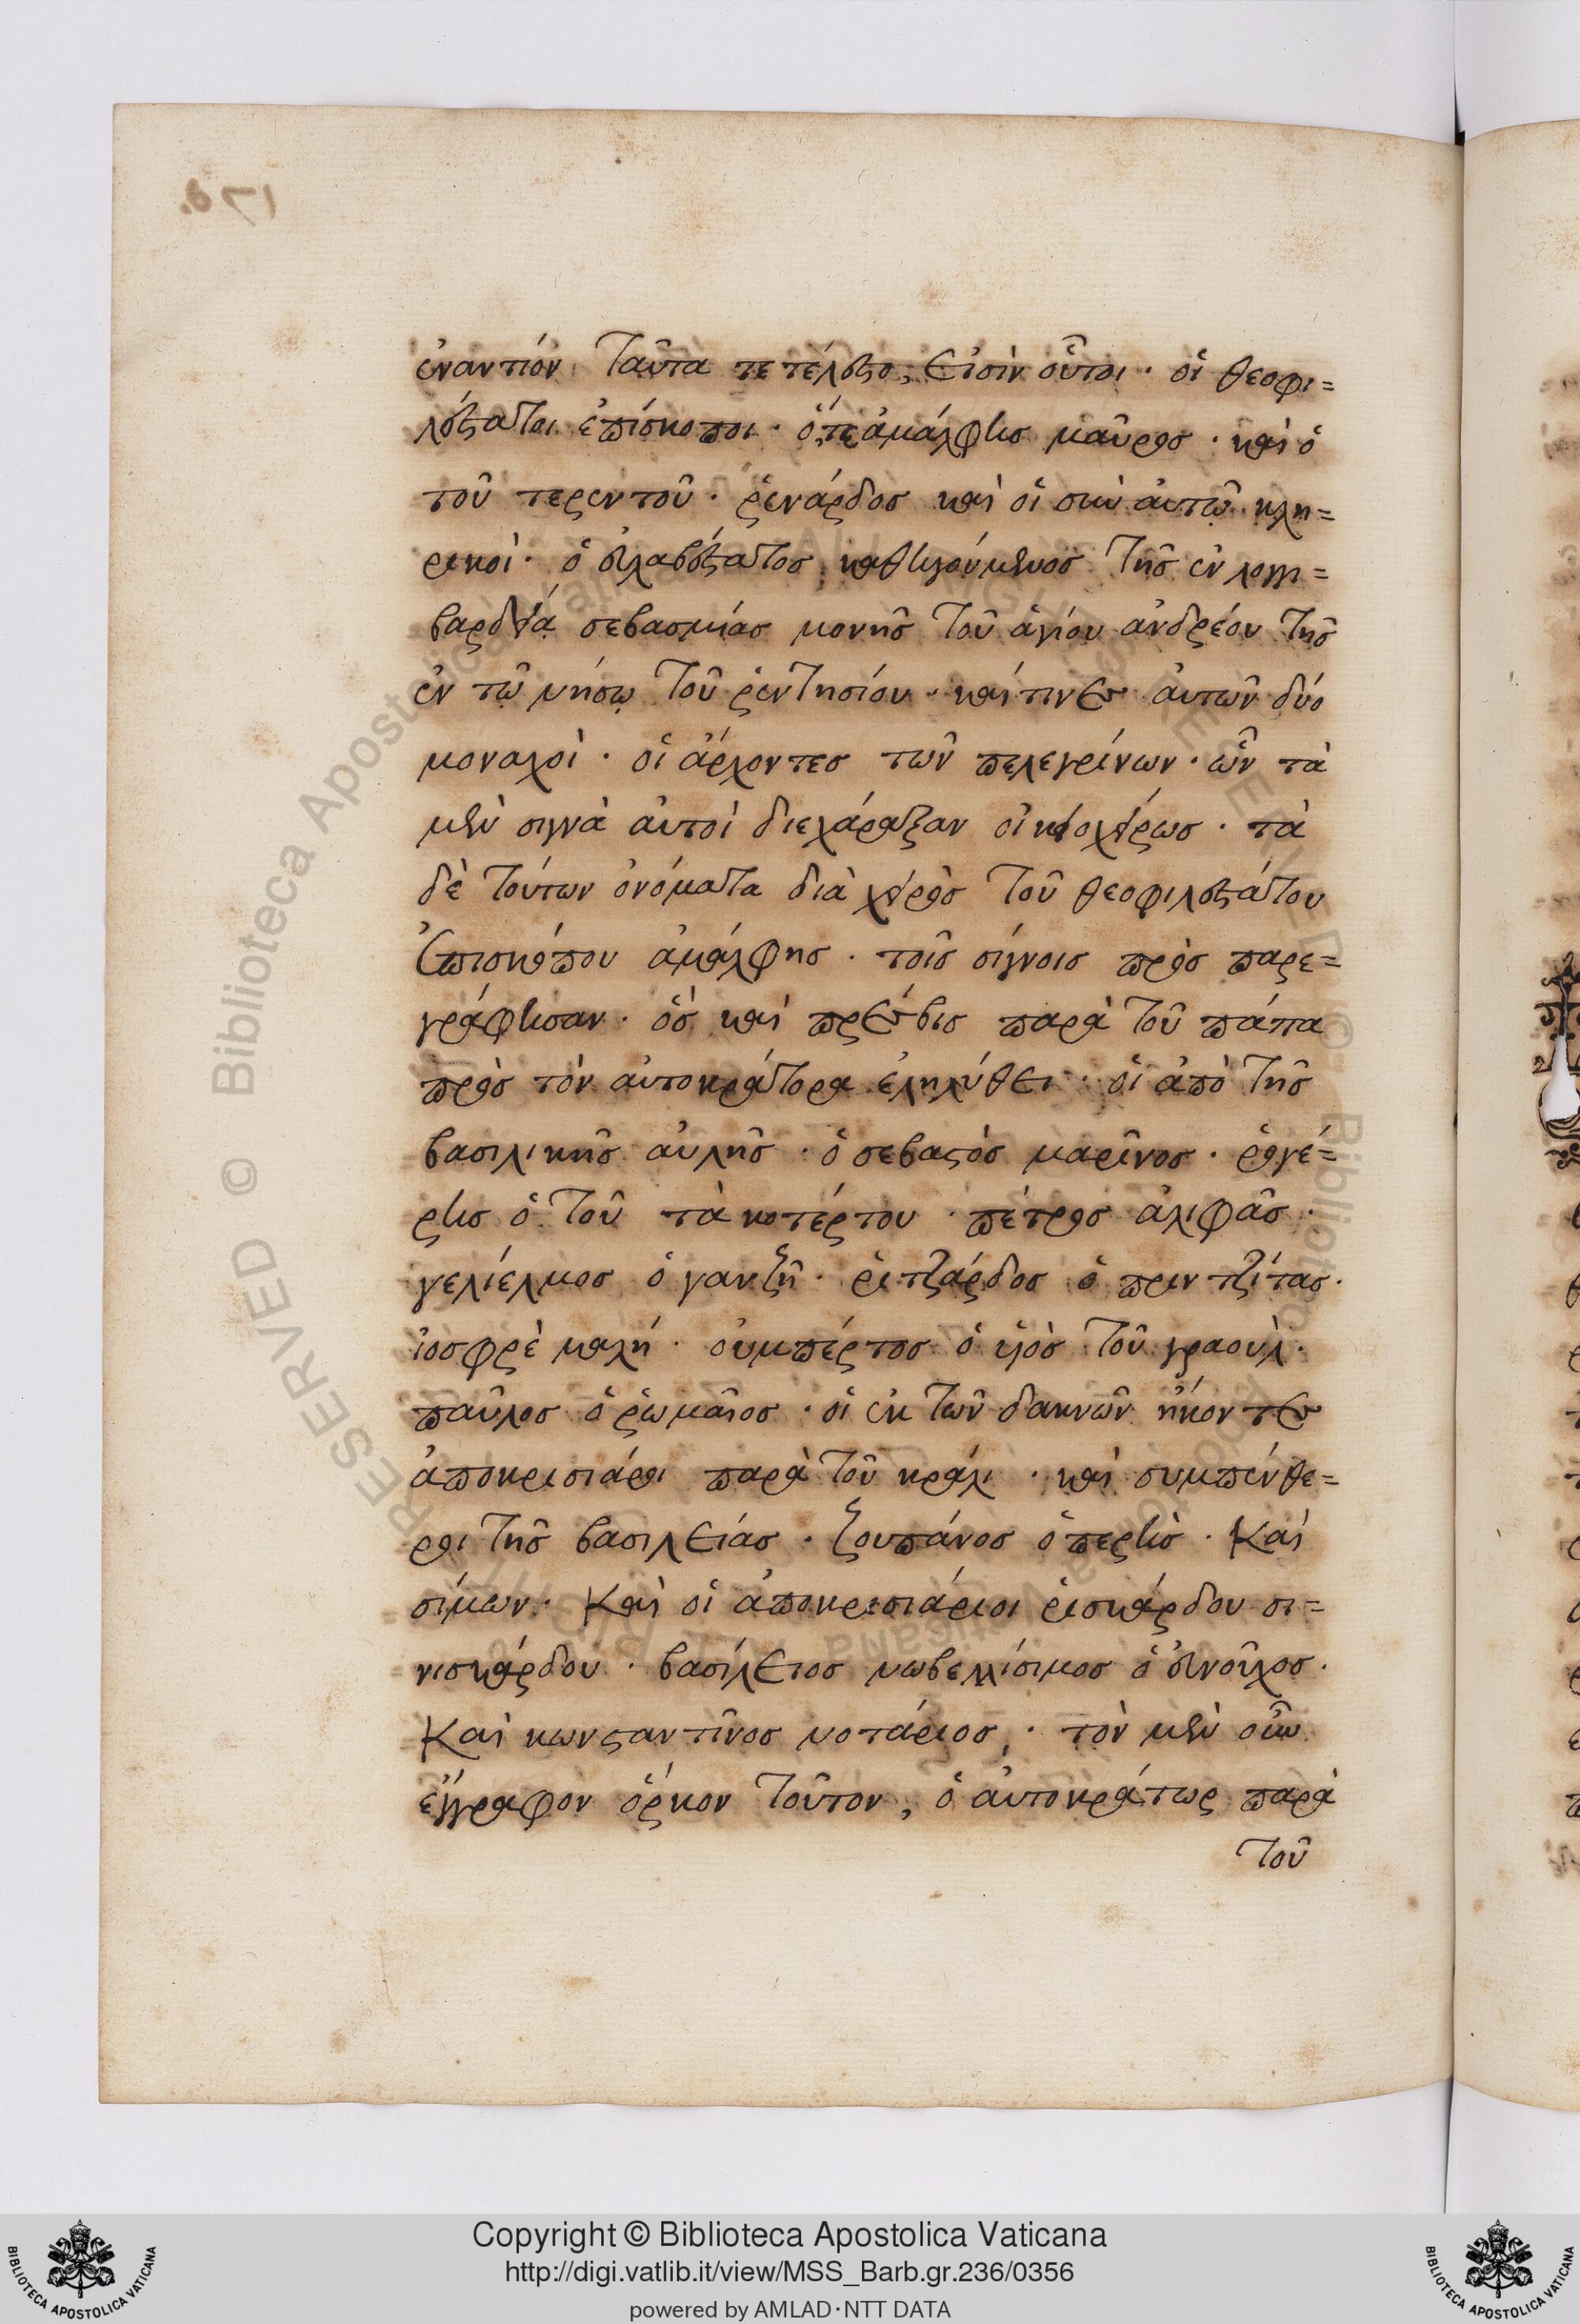 ἐναντίον ταῦτα τετέλεστο, εἰσὶν οὗτοι· οἱ θεοφι=
λέστατοι ἐπίσκοποι· ὅ, τε ἀμάλφης μαῦρος· καὶ ὁ
τοῦ τερεντοῦ· ῥενάρδος καὶ οἱ σὺν αὐτῷ κλη=
ρικοὶ· ὁ εὐλαβέστατος καθηγούμενος τῆς ἐν λογγι=
βαρδίᾳ σεβασμίας μονῆς τοῦ ἁγίου ἀνδρέου τῆς
ἐν τῷ νήσῳ τοῦ ῥεντησίου· καί τινες αὐτῶν δύο
μοναχοὶ· οἱ ἄρχοντες τῶν πελεγρίνων· ὧν τὰ
μὲν σιγνὰ αὐτοὶ διεχάραξαν οἰκειοχείρως· τὰ
δὲ τούτων ὀνόματα διὰ χειρὸς τοῦ θεοφιλεστάτου
ἐπισκόπου ἀμάλφης· τοῖς σίγνοις πρὸς παρε=
γράφησαν· ὃς καὶ πρέσβις παρὰ τοῦ πάπα
πρὸς τὸν αὐτοκράτορα ἐληλύθει· οἱ ἀπὸ τῆς
βασιλικῆς αὐλῆς· ὁ σεβαστὸς μαρῖνος· ῥογέ=
ρης ὁ τοῦ τὰ κοτέρτου· πέτρος ἀλιφᾶς·
γελίελμος ὁ γαντζῆ· ῥιτζάρδος ὁ πριντζίτας·
ἰοσφρὲ μαλή· οὑμπέρτος ὁ υἱὸς τοῦ γραοὺλ·
παῦλος ὁ ῥωμαῖος· οἱ ἐκ τῶν δακνῶν ἥκοντες
ἀποκρισιάροι παρὰ τοῦ κράλι· καὶ συμπένθε=
ροι τῆς βασιλείας· ζουπάνος ὁ περὴς· καὶ
σίμων· καὶ οἱ ἀποκρισιάριοι ῥισκάρδου σι=
νισκάρδου· βασίλειος νωβελλίσιμος ὁ εὐνοῦχος·
καὶ κωνσταντῖνος νοτάριος,· τὸν μὲν οὖν
ἔγγραφον ὅρκον τοῦτον, ὁ αὐτοκράτωρ παρὰ
τοῦ
Copyright © Biblioteca Apostolica Vaticana
http://digi.vatlib.it/view/MSS_Barb.gr.236/0356
powered by AMLAD·NTT DATA